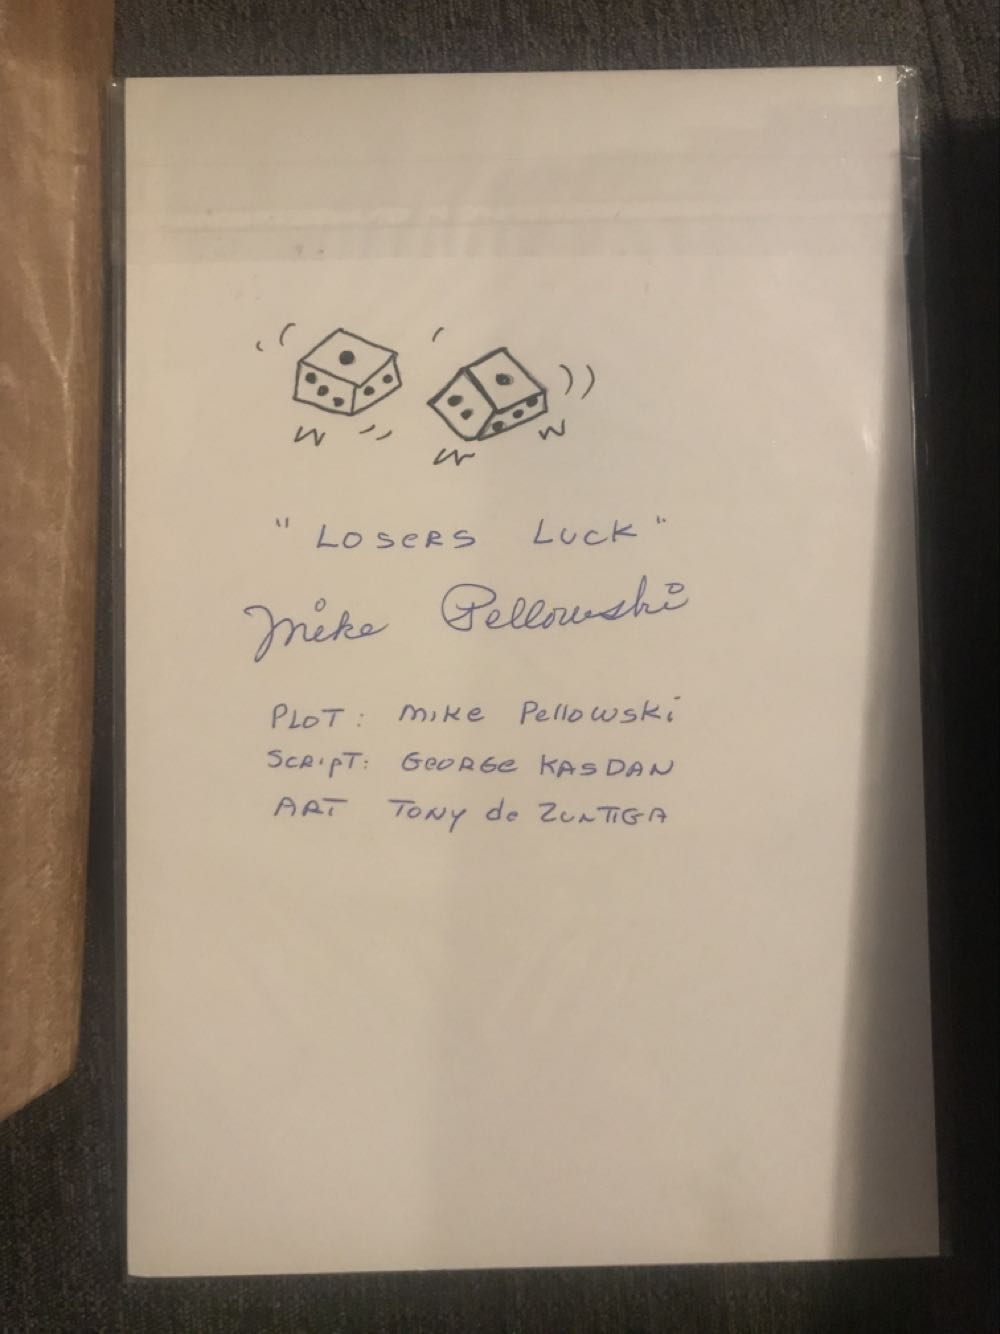 "Losers Luck"
Mike Pellowski
Plot: Mike Pellowski
Script: George Kasdan
Art Tony de Zuntiga